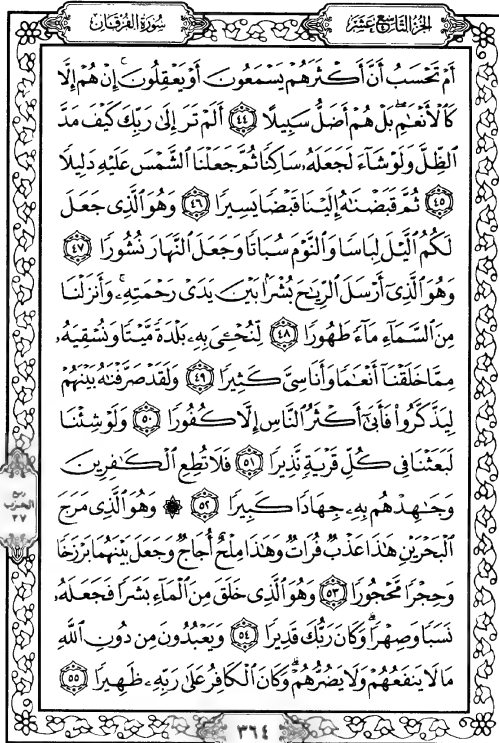 الجزء التاسع عشر
سورة الفرقان
أَمْ تَحْسَبُ أَنَّ أَكْثَرَهُمْ يَسْمَعُونَ أَوْ يَعْقِلُونَ ۚ إِنْ هُمْ إِلَّا
كَالْأَنْعَٰمِ ۖ بَلْ هُمْ أَضَلُّ سَبِيلًا ﴿٤٤﴾ أَلَمْ تَرَ إِلَىٰ رَبِّكَ كَيْفَ مَدَّ
ٱلظِّلَّ وَلَوْ شَآءَ لَجَعَلَهُۥ سَاكِنًا ثُمَّ جَعَلْنَا ٱلشَّمْسَ عَلَيْهِ دَلِيلًا
﴿٤٥﴾ ثُمَّ قَبَضْنَٰهُ إِلَيْنَا قَبْضًا يَسِيرًا ﴿٤٦﴾ وَهُوَ ٱلَّذِى جَعَلَ
لَكُمُ ٱلَّيْلَ لِبَاسًا وَٱلنَّوْمَ سُبَاتًا وَجَعَلَ ٱلنَّهَارَ نُشُورًا ﴿٤٧﴾
وَهُوَ ٱلَّذِىٓ أَرْسَلَ ٱلرِّيَٰحَ بُشْرًۢا بَيْنَ يَدَىْ رَحْمَتِهِۦ ۚ وَأَنزَلْنَا
مِنَ ٱلسَّمَآءِ مَآءً طَهُورًا ﴿٤٨﴾ لِّنُحْـِۧىَ بِهِۦ بَلْدَةً مَّيْتًا وَنُسْقِيَهُۥ
مِمَّا خَلَقْنَآ أَنْعَٰمًا وَأَنَاسِىَّ كَثِيرًا ﴿٤٩﴾ وَلَقَدْ صَرَّفْنَٰهُ بَيْنَهُمْ
لِيَذَّكَّرُوا۟ فَأَبَىٰٓ أَكْثَرُ ٱلنَّاسِ إِلَّا كُفُورًا ﴿٥٠﴾ وَلَوْ شِئْنَا
لَبَعَثْنَا فِى كُلِّ قَرْيَةٍ نَّذِيرًا ﴿٥١﴾ فَلَا تُطِعِ ٱلْكَٰفِرِينَ
وَجَٰهِدْهُم بِهِۦ جِهَادًا كَبِيرًا ﴿٥٢﴾ ۞ وَهُوَ ٱلَّذِى مَرَجَ
ٱلْبَحْرَيْنِ هَٰذَا عَذْبٌ فُرَاتٌ وَهَٰذَا مِلْحٌ أُجَاجٌ وَجَعَلَ بَيْنَهُمَا بَرْزَخًا
وَحِجْرًا مَّحْجُورًا ﴿٥٣﴾ وَهُوَ ٱلَّذِى خَلَقَ مِنَ ٱلْمَآءِ بَشَرًا فَجَعَلَهُۥ
نَسَبًا وَصِهْرًا ۗ وَكَانَ رَبُّكَ قَدِيرًا ﴿٥٤﴾ وَيَعْبُدُونَ مِن دُونِ ٱللَّهِ
مَا لَا يَنفَعُهُمْ وَلَا يَضُرُّهُمْ ۗ وَكَانَ ٱلْكَافِرُ عَلَىٰ رَبِّهِۦ ظَهِيرًا ﴿٥٥﴾
ربع
الحزب
٣٧
٣٦٤